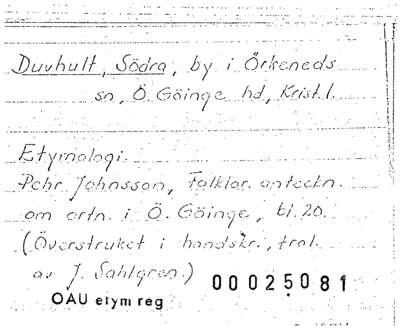 Duvhult, Södra, by i Örkeneds
sn, Ö. Göinge hd, Krist. l.
Etymologi.
Pehr Johnsson, Folklor. anteckn.
om ortn. i Ö. Göinge, bl. 20.
(Överstruket i handskr., trol.
av J. Sahlgren.)
00025081
OAU etym reg